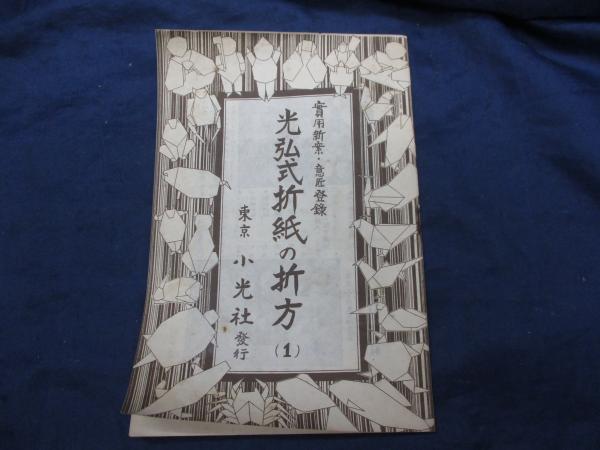 實用新案・意匠登錄
光弘式折紙の折方(1)
東京 小光社發行